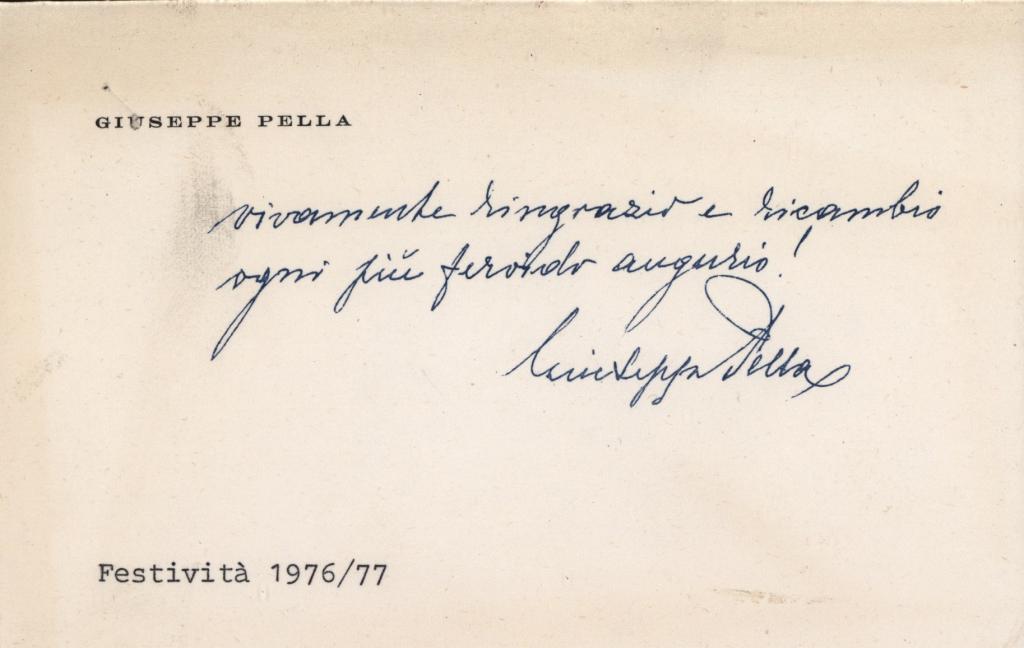 GIUSEPPE PELLA
vivamente ringrazio e ricambio
ogni più fervido augurio!
Giuseppe Pella
Festività 1976/77